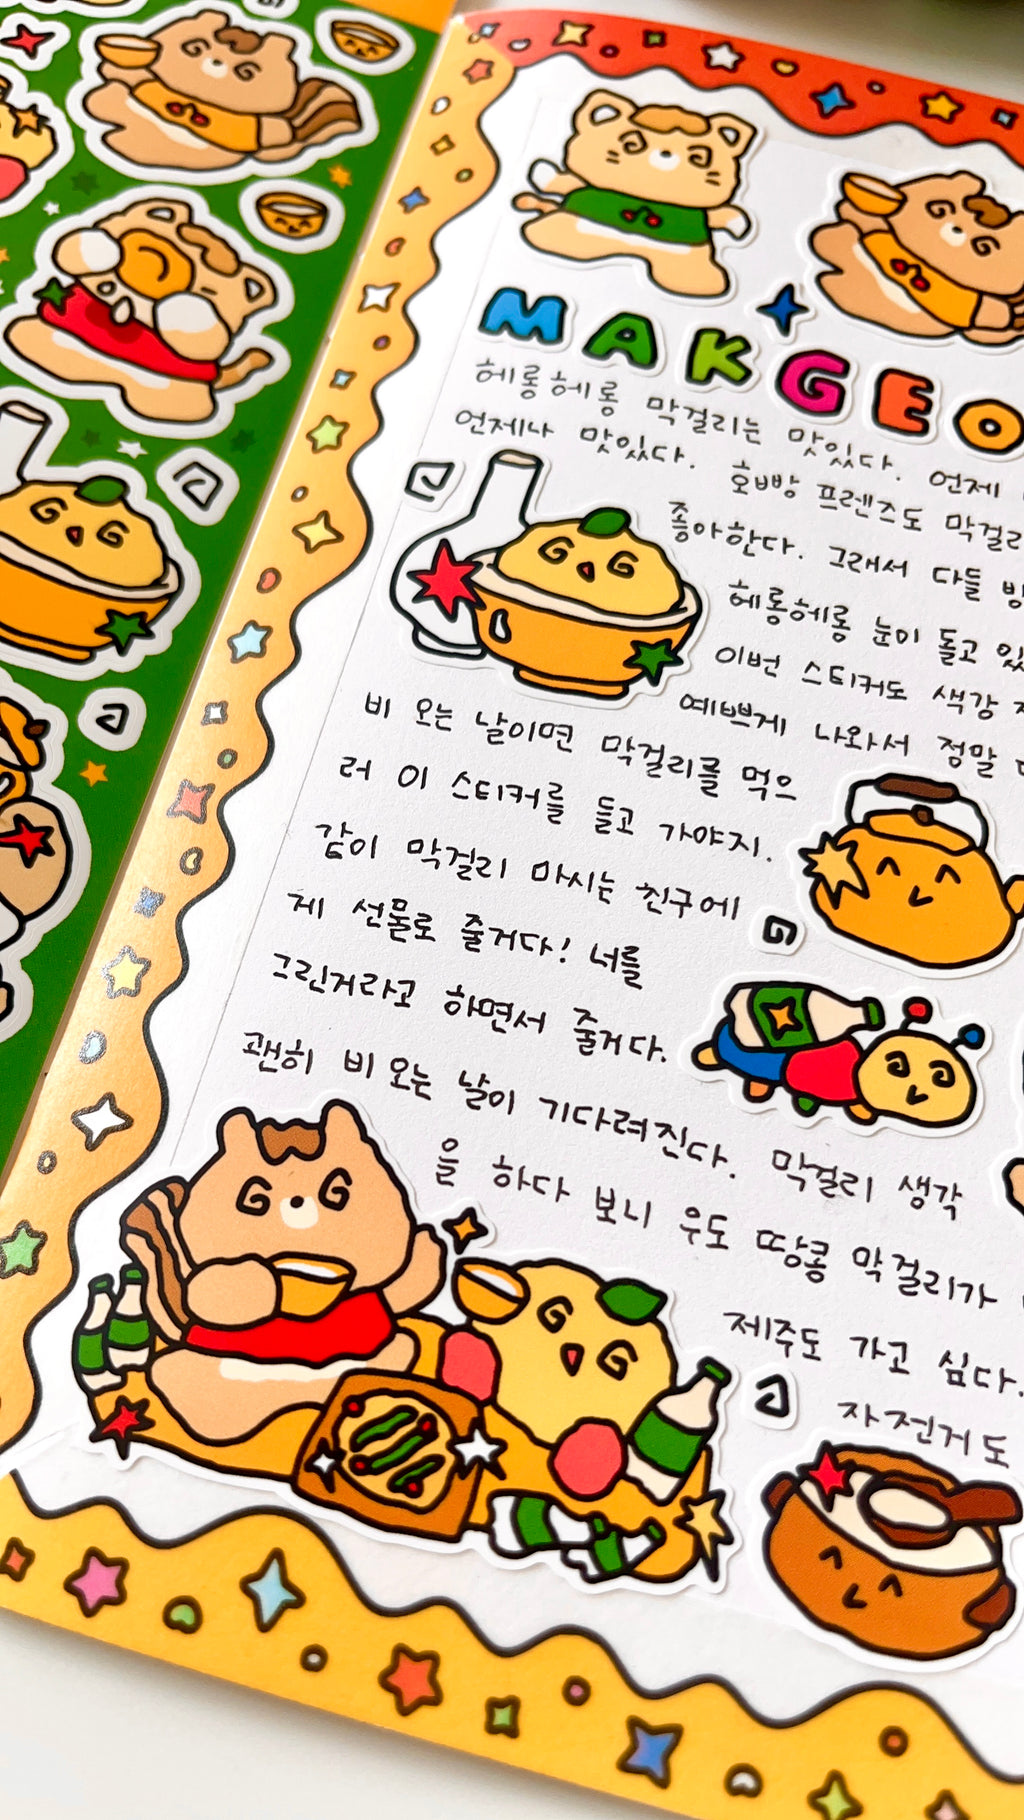 MAKGEO
헤롱헤롱 막걸리는 맛있다. 언제
언제나 맛있다. 호빵 프렌즈도 막걸리
좋아한다. 그래서 다들
헤롱헤롱 눈이 돌고
이번 스티커도 색감
예쁘게 나와서 정말
비 오는 날이면 막걸리를 먹으
러 이 스티커를 들고 가야지.
같이 막걸리 마시는 친구에
게 선물로 줄거다! 너를
그린거라고 하면서 줄거다.
괜히 비 오는 날이 기다려진다. 막걸리 생각
을 하다 보니 우도 땅콩 막걸리가
제주도 가고 싶다.
자전거도